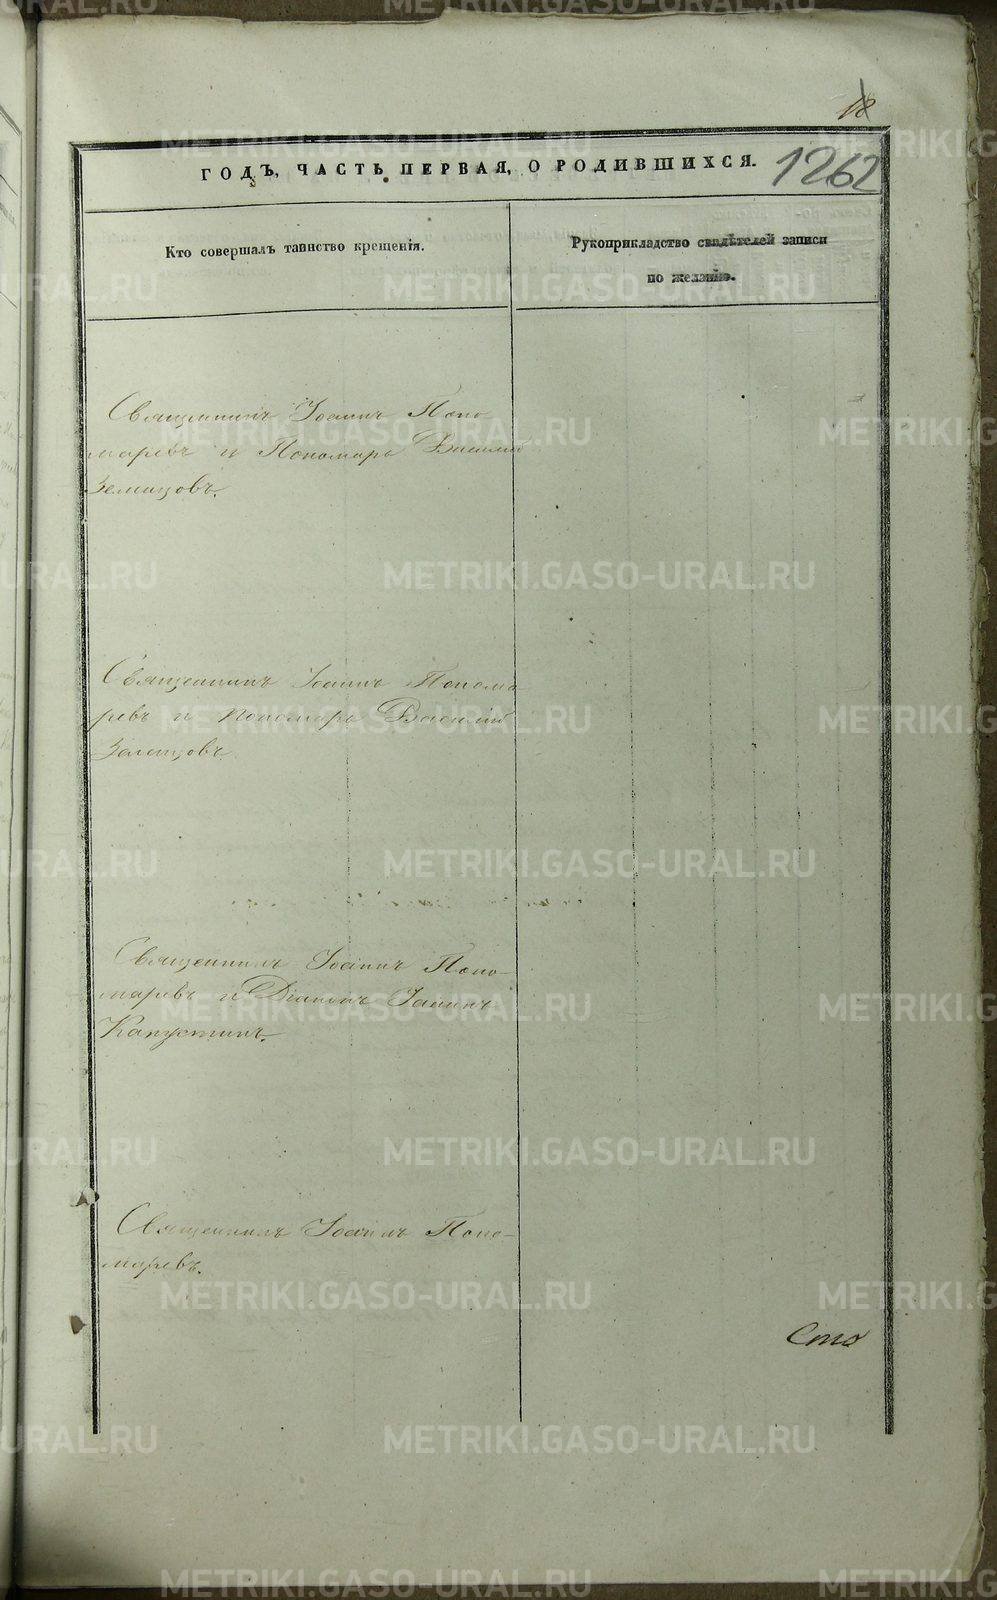 18
1262
ГОДЪ, ЧАСТЬ ПЕРВАЯ, О РОДИВШИХСЯ.
Кто совершалъ таинство крещенія.
Рукоприкладство свидѣтелей записи
по желанію.
Священникъ Іоаннъ Поно-
маревъ и Пономарь Василій
Земцовъ.
Священникъ Іоаннъ Понома-
ревъ и пономарь Василій
Земцовъ
Священникъ Іоаннъ Поно-
маревъ и Діаконъ Іоаннъ
Капустинъ.
Священникъ Іоаннъ Поно-
маревъ.
METRIKI.GASO-URAL.RU